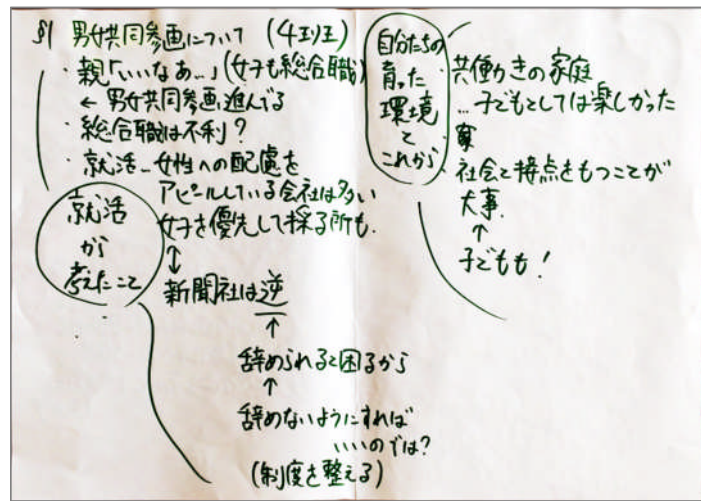 §1 男女共同参画について (4班)
・親「いいなあ…」(女子も総合職)
← 男女共同参画進んでる
・総合職は不利?
・就活…女性への配慮を
アピールしている会社は多い
女子を優先して採る所も.
↕
新聞社は逆
↑
辞められると困るから
↑
辞めないようにすれば
いいのでは?
(制度を整える)
就活
から
考えたこと
自分たちの
育った
環境
と
これから
・共働きの家庭
…子どもとしては楽しかった
・社会と接点をもつことが
大事.
↑
子どもも!